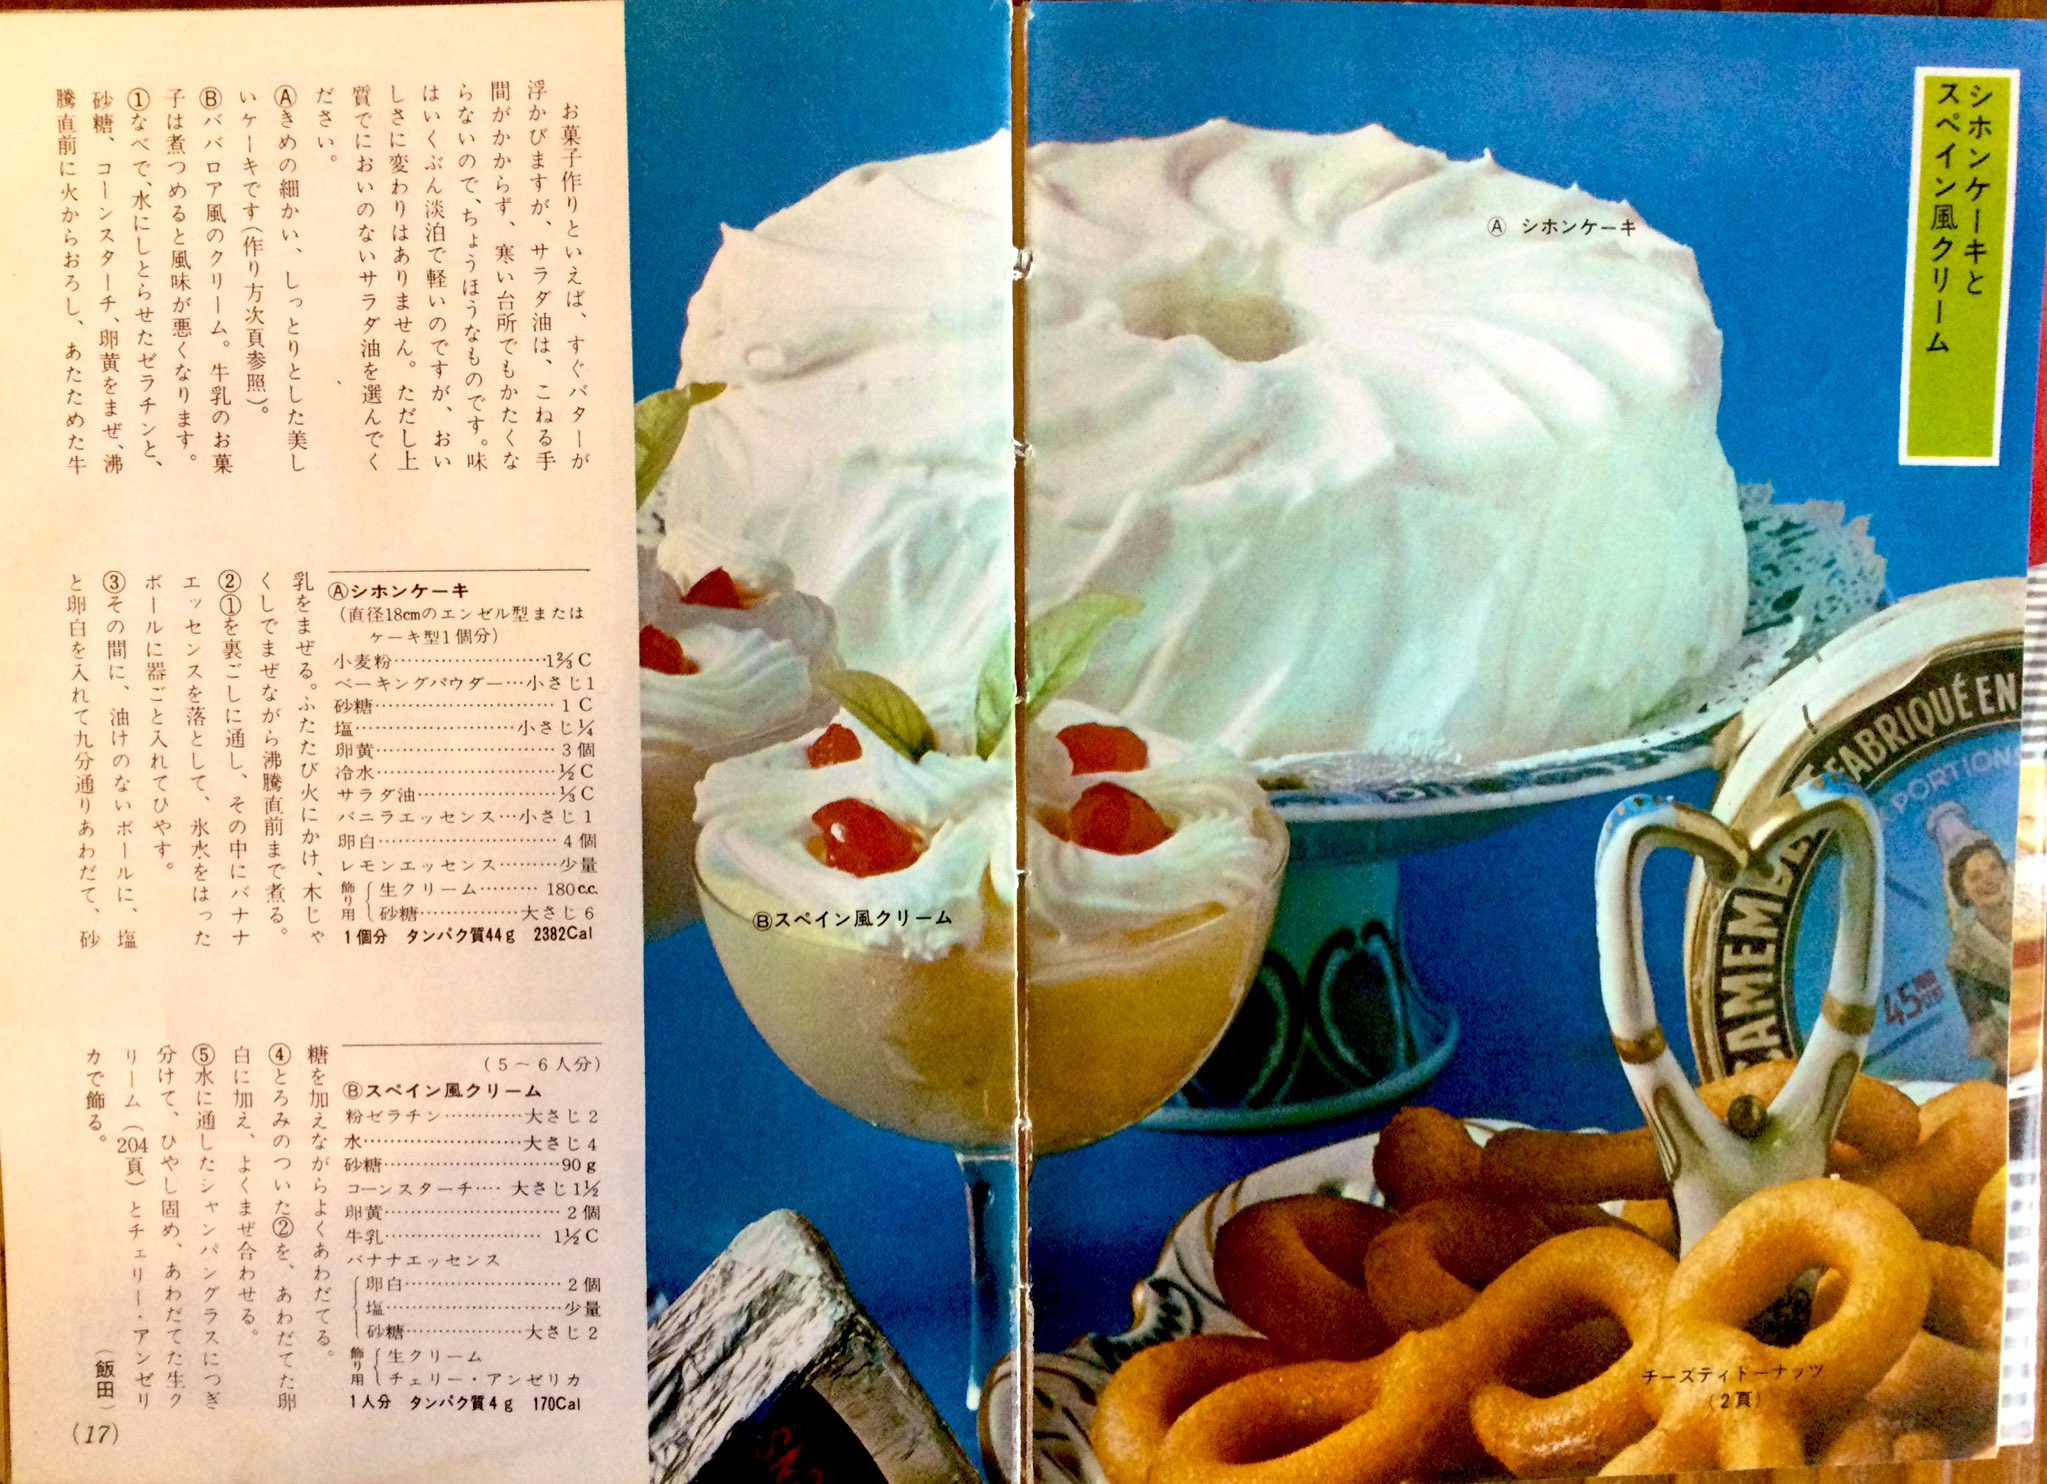 シホンケーキと
スペイン風クリーム
Ⓐ シホンケーキ
Ⓑスペイン風クリーム
チーズティドーナッツ
(2頁)
FABRIQUÉ EN
PORTIONS
45
お菓子作りといえば、すぐバターが
浮かびますが、サラダ油は、こねる手
間がかからず、寒い台所でもかたくな
らないので、ちょうほうなものです。味
はいくぶん淡泊で軽いのですが、おい
しさに変わりはありません。ただし上
質でにおいのないサラダ油を選んでく
ださい。
Ⓐきめの細かい、しっとりとした美し
いケーキです(作り方次頁参照)。
Ⓑババロア風のクリーム。牛乳のお菓
子は煮つめると風味が悪くなります。
①なべで、水にしとらせたゼラチンと、
砂糖、コーンスターチ、卵黄をまぜ、沸
騰直前に火からおろし、あたためた牛
Ⓐシホンケーキ
(直径18cmのエンゼル型または
ケーキ型1個分)
小麦粉……………………1⅔C
ベーキングパウダー…小さじ1
砂糖………………………1C
塩……………………小さじ¼
卵黄………………………3個
冷水………………………½C
サラダ油…………………⅓C
バニラエッセンス…小さじ1
卵白………………………4個
レモンエッセンス………少量
飾り用
生クリーム………180c.c.
砂糖……………大さじ6
1個分 タンパク質44g 2382Cal
乳をまぜる。ふたたび火にかけ、木じゃ
くしでまぜながら沸騰直前まで煮る。
②①を裏ごしに通し、その中にバナナ
エッセンスを落として、氷水をはった
ボールに器ごと入れてひやす。
③その間に、油けのないボールに、塩
と卵白を入れて九分通りあわだて、砂
(5～6人分)
Ⓑスペイン風クリーム
粉ゼラチン…………大さじ2
水……………………大さじ4
砂糖………………………90g
コーンスターチ…大さじ1½
卵黄………………………2個
牛乳……………………1½C
バナナエッセンス
卵白……………………2個
塩………………………少量
砂糖………………大さじ2
飾り用
生クリーム
チェリー・アンゼリカ
1人分 タンパク質4g 170Cal
糖を加えながらよくあわだてる。
④とろみのついた②を、あわだてた卵
白に加え、よくまぜ合わせる。
⑤水に通したシャンパングラスにつぎ
分けて、ひやし固め、あわだてた生ク
リーム(204頁)とチェリー・アンゼリ
カで飾る。
(飯田)
(17)